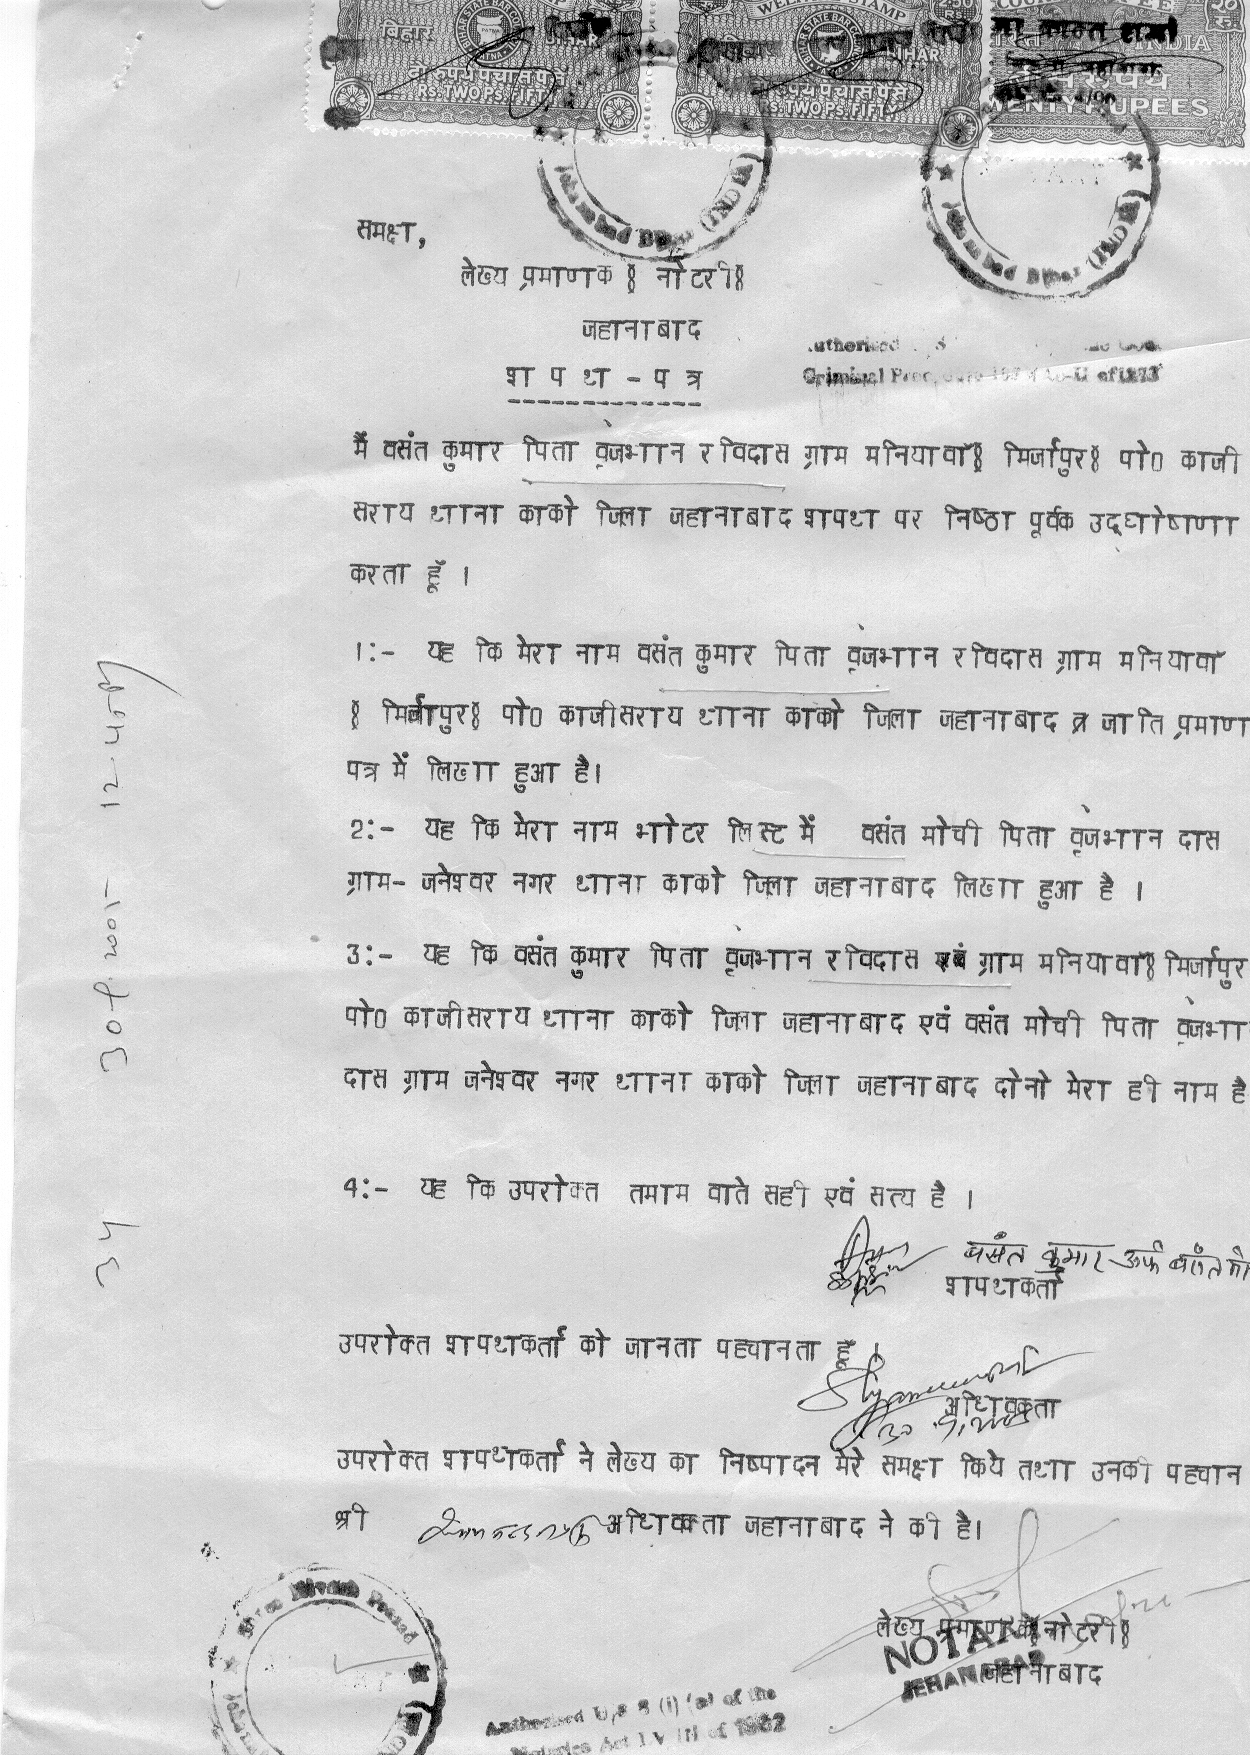 बिहार
BIHAR
दो रुपये पचास पैसे
RS. TWO PS. FIFTY
WELFARE STAMP
STATE BAR COUNCIL
BIHAR
रुपये पचास पैसे
RS. TWO PS. FIFTY
INDIA
RUPEES
Jehanabad Bihar (INDIA)
Jehanabad Bihar (INDIA)
समक्ष,
लेख्य प्रमाणक ( नोटरी)
जहानाबाद
Authorised
Criminal of 1973
श प थ - प त्र
मैं वसंत कुमार पिता वृजभान रविदास ग्राम मनियावाँ( मिर्जापुर) पो0 काजी
सराय थाना काको जिला जहानाबाद शपथ पर निष्ठा पूर्वक उद्घोषणा
करता हूँ ।
1:- यह कि मेरा नाम वसंत कुमार पिता वृजभान रविदास ग्राम मनियावाँ
( मिर्जापुर) पो0 काजीसराय थाना काको जिला जहानाबाद जाति प्रमाण
पत्र में लिखा हुआ है।
2:- यह कि मेरा नाम भोटर लिस्ट में वसंत मोची पिता वृजभान दास
ग्राम- जनेश्वर नगर थाना काको जिला जहानाबाद लिखा हुआ है ।
3:- यह कि वसंत कुमार पिता वृजभान रविदास ग्राम मनियावाँ( मिर्जापुर
पो0 काजीसराय थाना काको जिला जहानाबाद एवं वसंत मोची पिता वृजभा
दास ग्राम जनेश्वर नगर थाना काको जिला जहानाबाद दोनो मेरा ही नाम है
4:- यह कि उपरोक्त तमाम वाते सही एवं सत्य है ।
बसंत कुमार उर्फ बसंत मो
शपथकर्ता
उपरोक्त शपथकर्ता को जानता पहचानता हूँ ।
अधिवक्ता
उपरोक्त शपथकर्ता ने लेख्य का निष्पादन मेरे समक्ष किये तथा उनकी पहचान
श्री अधिवक्ता जहानाबाद ने की है।
लेख्य प्रमाणक( नोटरी)
NOTARY
JEHANABAD
जहानाबाद
Prasad
Authorised U/S 8 (i) (a) of the
Notaries Act of 1952
34